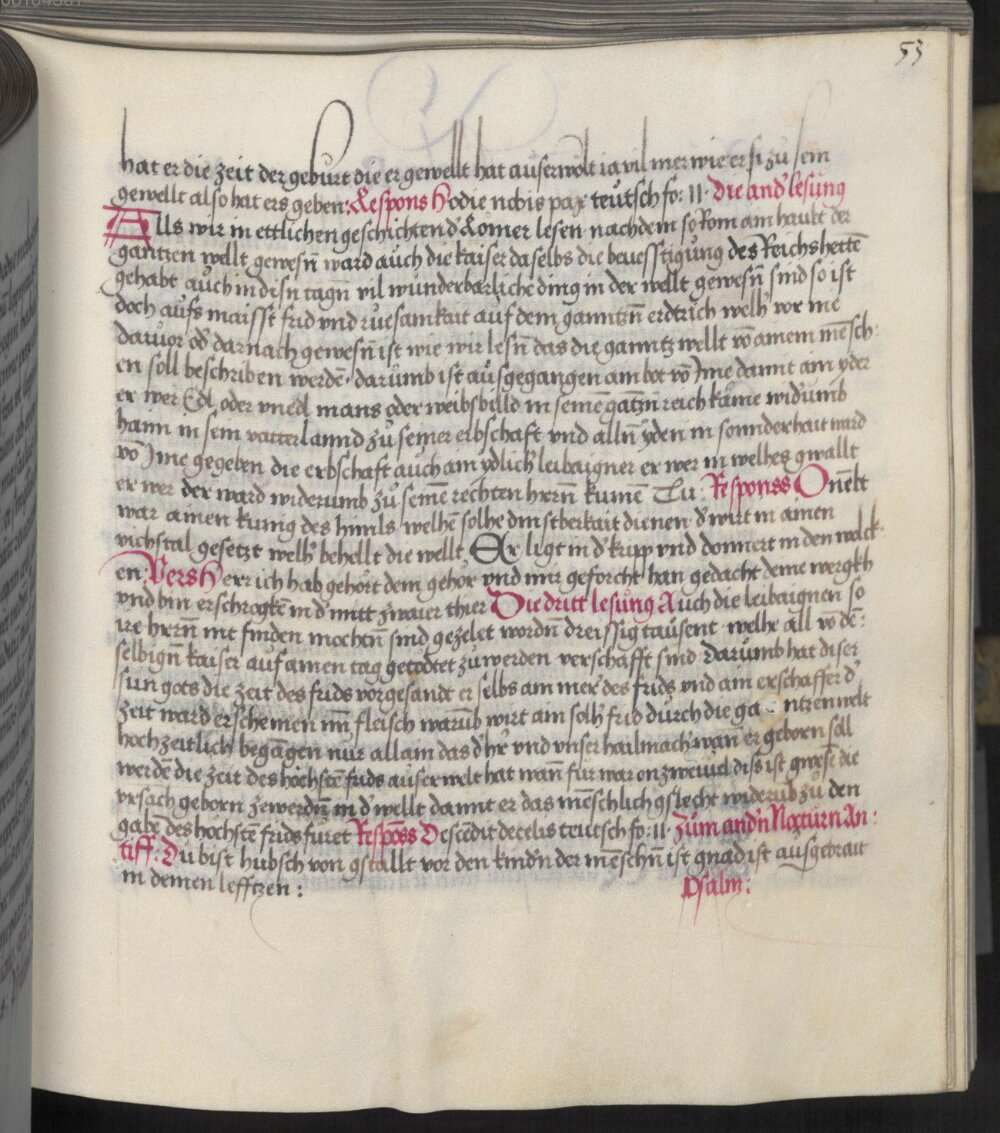 53
hat er die zeit der geburt die er gewellt hat auserwölt ia vil mer wie er si zu sein
gewellt also hat ers geben: Respons Hodie nobis pax teutsch fo: 11. Die and' lesung
Alls wir in ettlichen geschichten d' Römer lesen nachdem so Rom am haubt der
gantzen wellt gewesn̄ ward auch die kaiser daselbs die beuesstigung des Reichs hettē
gehabt auch in disn tagn̄ vil wunderbarliche ding in der wellt gewesn̄ sind so ist
doch aufs maisst frid vnd ruesamkait auf dem ganntzn̄ erdtrich welh' vor nie
daruor od' darnach gewesn̄ ist wie wir lesn̄ das die ganntz wellt vō ainem mēsch:
en soll beschriben werdē. darumb ist ausgegangen ain bot vō Ime damit ain yder
er wer Edl oder vnedl mans oder weibsbilld in seinē gātzn reich kame wid'umb
haim in sein vatterlannd zu seiner erbschaft vnd alln̄ yden in sonnderhait ward
vō Ime gegeben die erbschaft auch ain ydlich' leibaigner er wer in welhes gwallt
er wer der ward widerumb zu seinē rechten herrn̄ kumē Tu: Responss O nēkt
war ainen kunig des himls welhē solhe dinstberkait dienen d' wirt in ainen
vichstal gesetzt welh' behellt die wellt Er ligt in d' kripp vnd donnert in den wolck
en: Vers Herr ich hab gehört dein gehör vnd mir geforcht han gedacht deine wergkh
vnd bin erschragkē in d' mitt zwaier thier Die dritt lesung Auch die leibaignen so
ire herrn̄ nit finden mochtn̄ sind gezelet wordn̄ dreissig tausent welhe all vō dē:
selbign̄ kaiser auf ainen tag getödtet zu werden verschafft sind Darumb hat diser
sun gots die zeit des frids vorgesandt er selbs ain mer' des frids vnd ain erschaffer d'
zeit ward erscheinen im fleisch warūb wirt ain solh' frid durch die ga - ntzen welt
hochzeitlich begāgen nur allain das d' hr' vnd vnser hailmach' wan er geborn soll
werdē die zeit des höchstē frids auserwelt hat wann fur war on zweiuel diss ist gwesē die
vrsach geborn zewerdn̄ in d' wellt damit er das mēschlich gslecht widerūb zu den
gabē des höchstē frids furet Respōss Descēdit de celis teutsch fo: 11. Zum and'n Noxturn An:
tiff: Du bist hubsch von gstallt vor den kindn̄ der mēschn̄ ist gnad ist ausgebrait
in deinen lefftzen: Psalm: